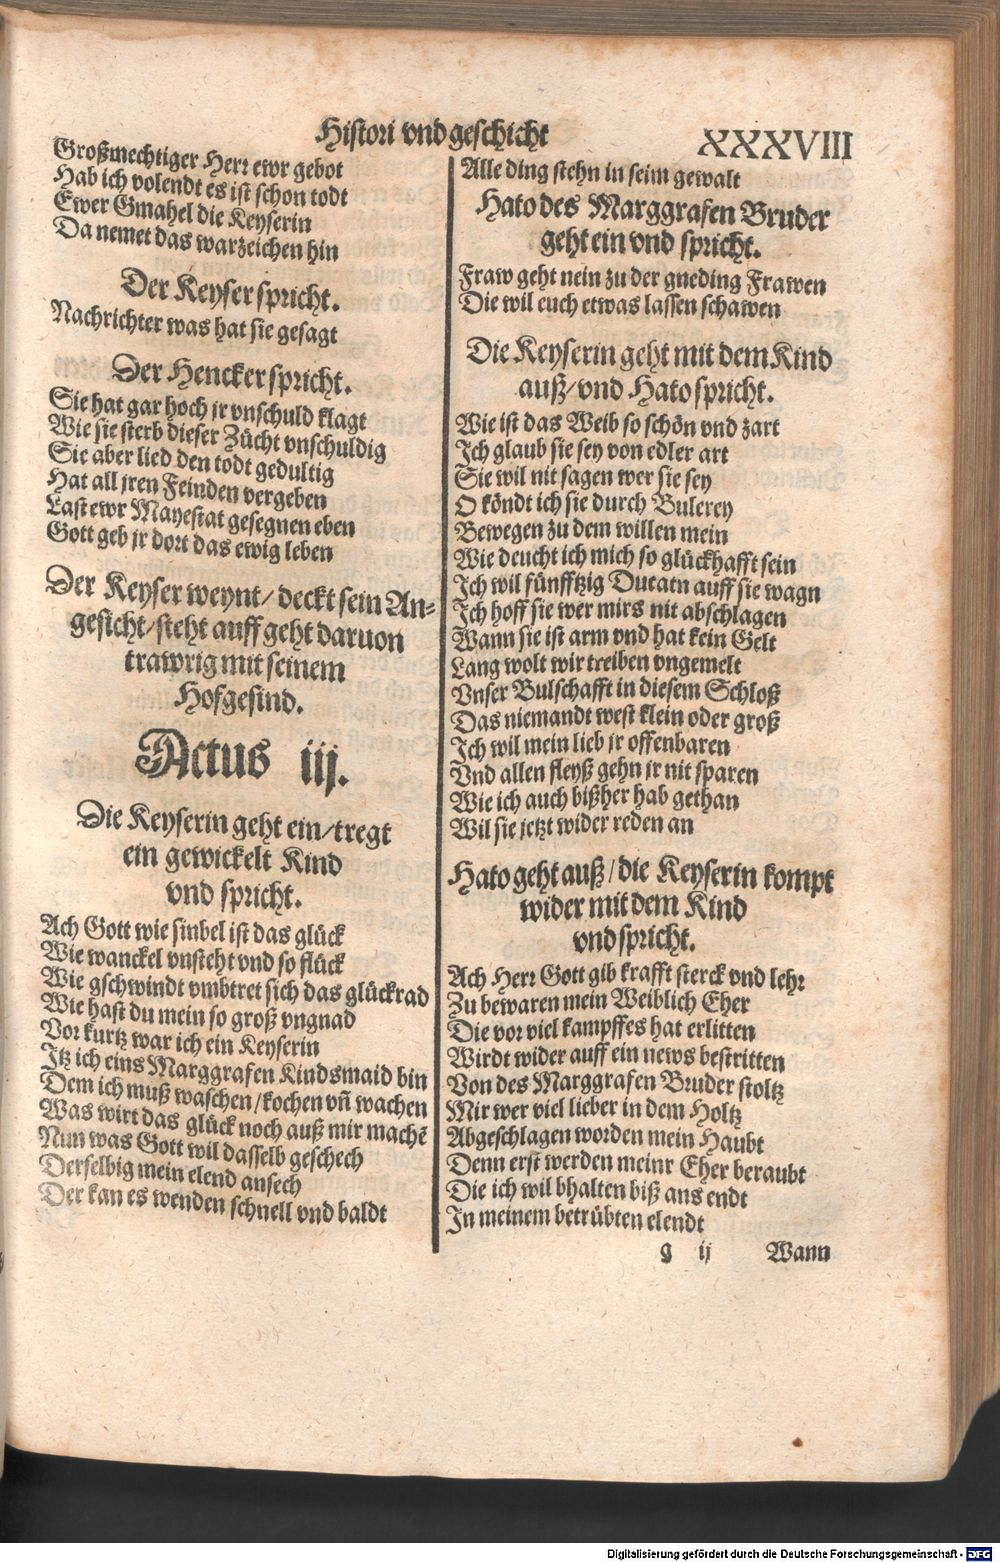 Histori vnd geschicht
XXXVIII
Großmechtiger Herr ewr gebot
Hab ich volendt es ist schon todt
Ewer Gmahel die Keyserin
Da nemet das warzeichen hin
Der Keyser spricht.
Nachrichter was hat sie gesagt
Der Hencker spricht.
Sie hat gar hoch jr vnschuld klagt
Wie sie sterb dieser Zücht vnschuldig
Sie aber lied den todt gedultig
Hat all jren Feinden vergeben
Last ewr Mayestat gesegnen eben
Gott geb jr dort das ewig leben
Der Keyser weynt/ deckt sein An-
gesicht/steht auff geht daruon
trawrig mit seinem
Hofgesind.
Actus iij.
Die Keyserin geht ein/tregt
ein gewickelt Kind
vnd spricht.
Ach Gott wie sinbel ist das glück
Wie wanckel vnsteht vnd so flück
Wie gschwindt vmbtret sich das glückrad
Wie hast du mein so groß vngnad
Vor kurtz war ich ein Keyserin
Jtz ich eins Marggrafen Kindsmaid bin
Dem ich muß waschen/kochen vñ wachen
Was wirt das glück noch auß mir machẽ
Nun was Gott wil dasselb geschech
Derselbig mein elend ansech
Der kan es wenden schnell vnd baldt
Alle ding stehn in seim gewalt
Hato des Marggrafen Bruder
geht ein vnd spricht.
Fraw geht nein zu der gneding Frawen
Die wil euch etwas lassen schawen
Die Keyserin geht mit dem Kind
auß/vnd Hato spricht.
Wie ist das Weib so schön vnd zart
Ich glaub sie sey von edler art
Sie wil nit sagen wer sie sey
O köndt ich sie durch Bulerey
Bewegen zu dem willen mein
Wie deucht ich mich so glückhafft sein
Ich wil fünfftzig Ducatn auff sie wagn
Ich hoff sie wer mirs nit abschlagen
Wann sie ist arm vnd hat kein Gelt
Lang wolt wir treiben vngemelt
Vnser Bulschafft in diesem Schloß
Das niemandt west klein oder groß
Ich wil mein lieb jr offenbaren
Vnd allen fleyß gehn jr nit sparen
Wie ich auch bißher hab gethan
Wil sie jetzt wider reden an
Hato geht auß/die Keyserin kompt
wider mit dem Kind
vnd spricht.
Ach Herr Gott gib krafft sterck vnd lehr
Zu bewaren mein Weiblich Eher
Die vor viel kampffes hat erlitten
Wirdt wider auff ein news bestritten
Von des Marggrafen Bruder stoltz
Mir wer viel lieber in dem Holtz
Abgeschlagen worden mein Haubt
Denn erst werden meinr Eher beraubt
Die ich wil bhalten biß ans endt
In meinem betrübten elendt
g ij
Wann
Digitalisierung gefördert durch die Deutsche Forschungsgemeinschaft - DFG